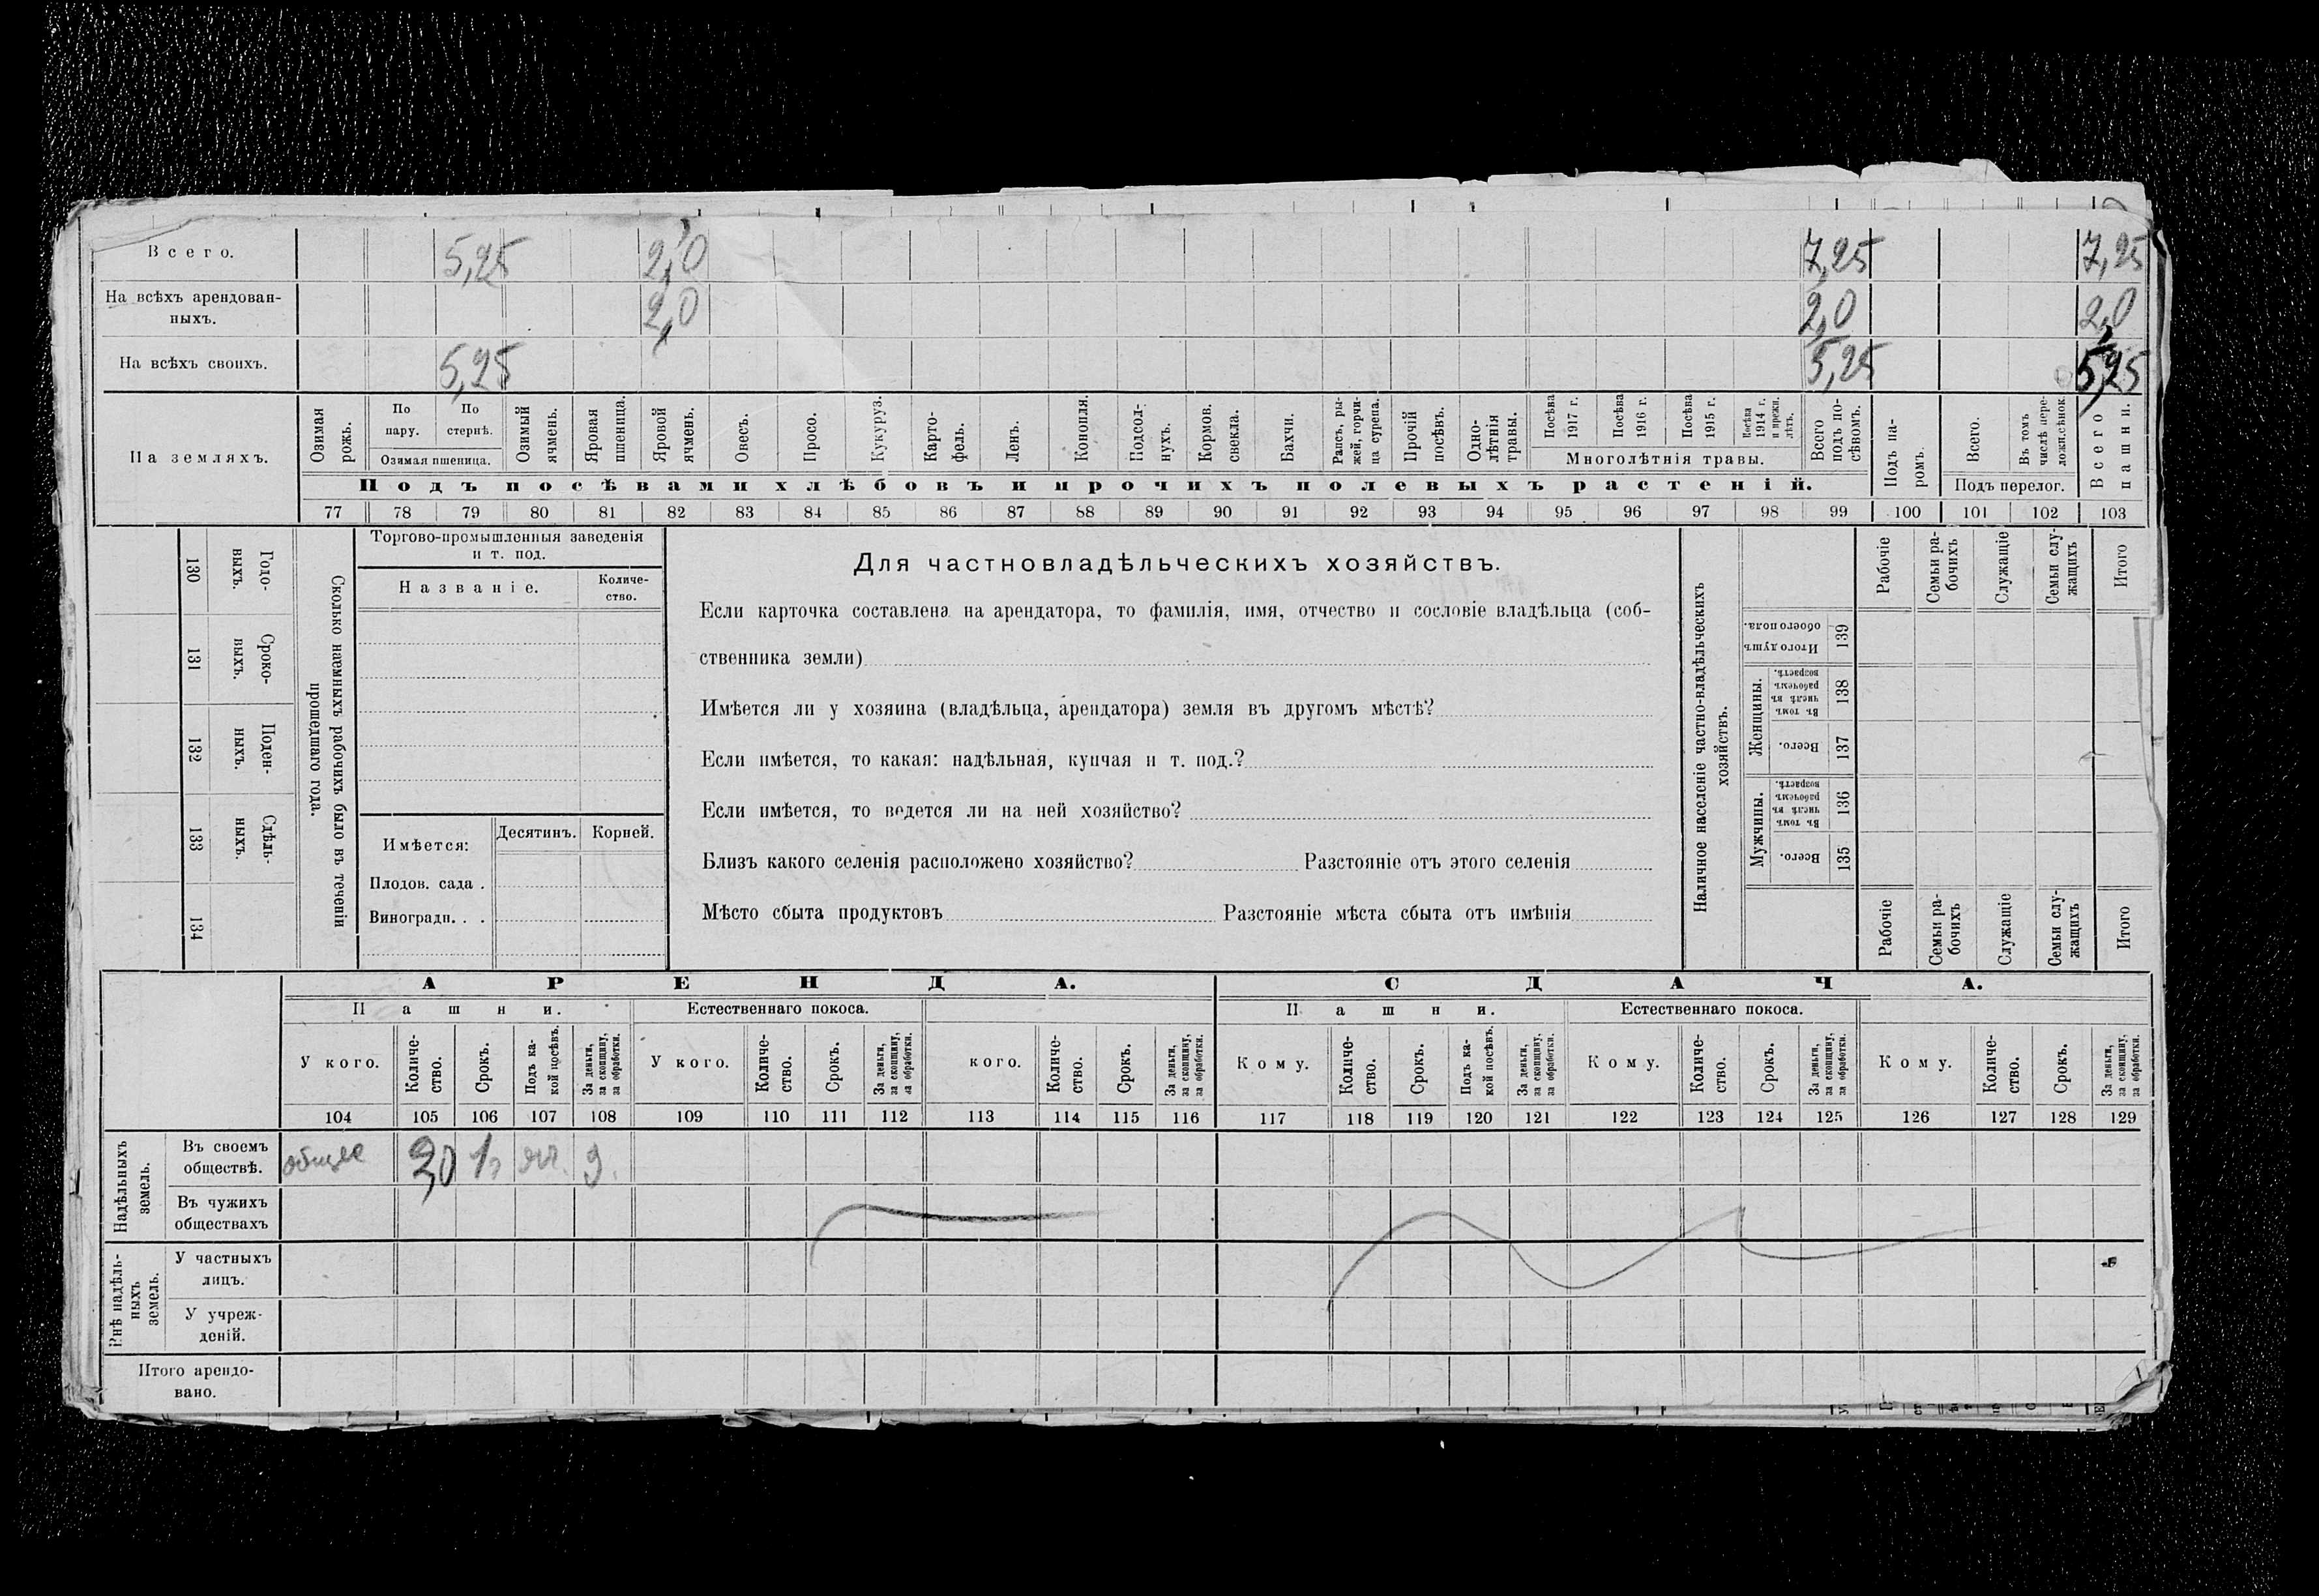 Всего. 5,25 2,0 7,25 7,25
На всѣхъ арендован-
ныхъ. 2,0 2,0 2,0
На всѣхъ своихъ. 5,25 5,25 5,25
На земляхъ.
Озимая рожь.
По пару.
По стернѣ.
Озимая пшеница.
Озимый ячмень.
Яровая пшеница.
Яровой ячмень.
Овесъ.
Просо.
Кукуруз.
Карто-
фель.
Ленъ.
Конопля.
Подсол-
нухъ.
Кормов. свекла.
Бахчи.
Рапсъ, ры-
жей, горчи-
ца сурепа.
Прочій посѣвъ.
Одно-
лѣтнія травы.
Посѣва 1917 г.
Посѣва 1916 г.
Посѣва 1915 г.
Посѣва 1914 г. и прежн. лѣтъ.
Многолѣтнія травы.
Всего подъ по-
сѣвомъ.
Подъ па-
ромъ.
Всего.
Въ томъ числѣ пере-
ложн.сѣнок.
Подъ перелог.
Всего пашни.
Подъ посѣвами хлѣбовъ и прочихъ полевыхъ растеній.
77 78 79 80 81 82 83 84 85 86 87 88 89 90 91 92 93 94 95 96 97 98 99 100 101 102 103
130 Годо-
выхъ.
131 Сроко-
выхъ.
132 Поден-
ныхъ.
133 Сдѣль-
ныхъ.
134
Сколько наемныхъ рабочихъ было въ теченіи
прошедшаго года.
Торгово-промышленныя заведенія
и т. под.
Названіе.
Количе-
ство.
Имѣется: Десятинъ. Корней.
Плодов. сада .
Виноградн. . .
Для частновладѣльческихъ хозяйствъ.
Если карточка составлена на арендатора, то фамилія, имя, отчество и сословіе владѣльца (соб-
ственника земли)
Имѣется ли у хозяина (владѣльца, арендатора) земля въ другомъ мѣстѣ?
Если имѣется, то какая: надѣльная, купчая и т. под.?
Если имѣется, то ведется ли на ней хозяйство?
Близъ какого селенія расположено хозяйство? Разстояніе отъ этого селенія
Мѣсто сбыта продуктовъ Разстояніе мѣста сбыта отъ имѣнія
Наличное населеніе частно-владѣльческихъ
хозяйствъ.
Рабочіе
Семьи ра-
бочихъ
Служащіе
Семьи слу-
жащихъ
Итого
Итого душъ обоего пола. 139
Женщины.
Въ томъ числѣ въ рабочемъ возрастѣ. 138
Всего. 137
Мужчины.
Въ томъ числѣ въ рабочемъ возрастѣ. 136
Всего. 135
Рабочіе
Семьи ра-
бочихъ
Служащіе
Семьи слу-
жащихъ
Итого
АРЕНДА. СДАЧА.
Пашни. Естественнаго покоса. Пашни. Естественнаго покоса.
У кого.
Количе-
ство.
Срокъ.
Подъ ка-
кой посѣвъ.
За деньги, за скопщину, за обработки.
У кого.
Количе-
ство.
Срокъ.
За деньги, за скопщину, за обработки.
кого.
Количе-
ство.
Срокъ.
За деньги, за скопщину, за обработки.
Кому.
Количе-
ство.
Срокъ.
Подъ ка-
кой посѣвъ.
За деньги, за скопщину, за обработки.
Кому.
Количе-
ство.
Срокъ.
За деньги, за скопщину, за обработки.
Кому.
Количе-
ство.
Срокъ.
За деньги, за скопщину, за обработки.
104 105 106 107 108 109 110 111 112 113 114 115 116 117 118 119 120 121 122 123 124 125 126 127 128 129
Надѣльныхъ
земель.
Въ своемъ
обществѣ. общее
Въ чужихъ
обществахъ
Внѣ надѣль-
ныхъ
земель.
У частныхъ
лицъ.
У учреж-
деній.
Итого арендо-
вано.